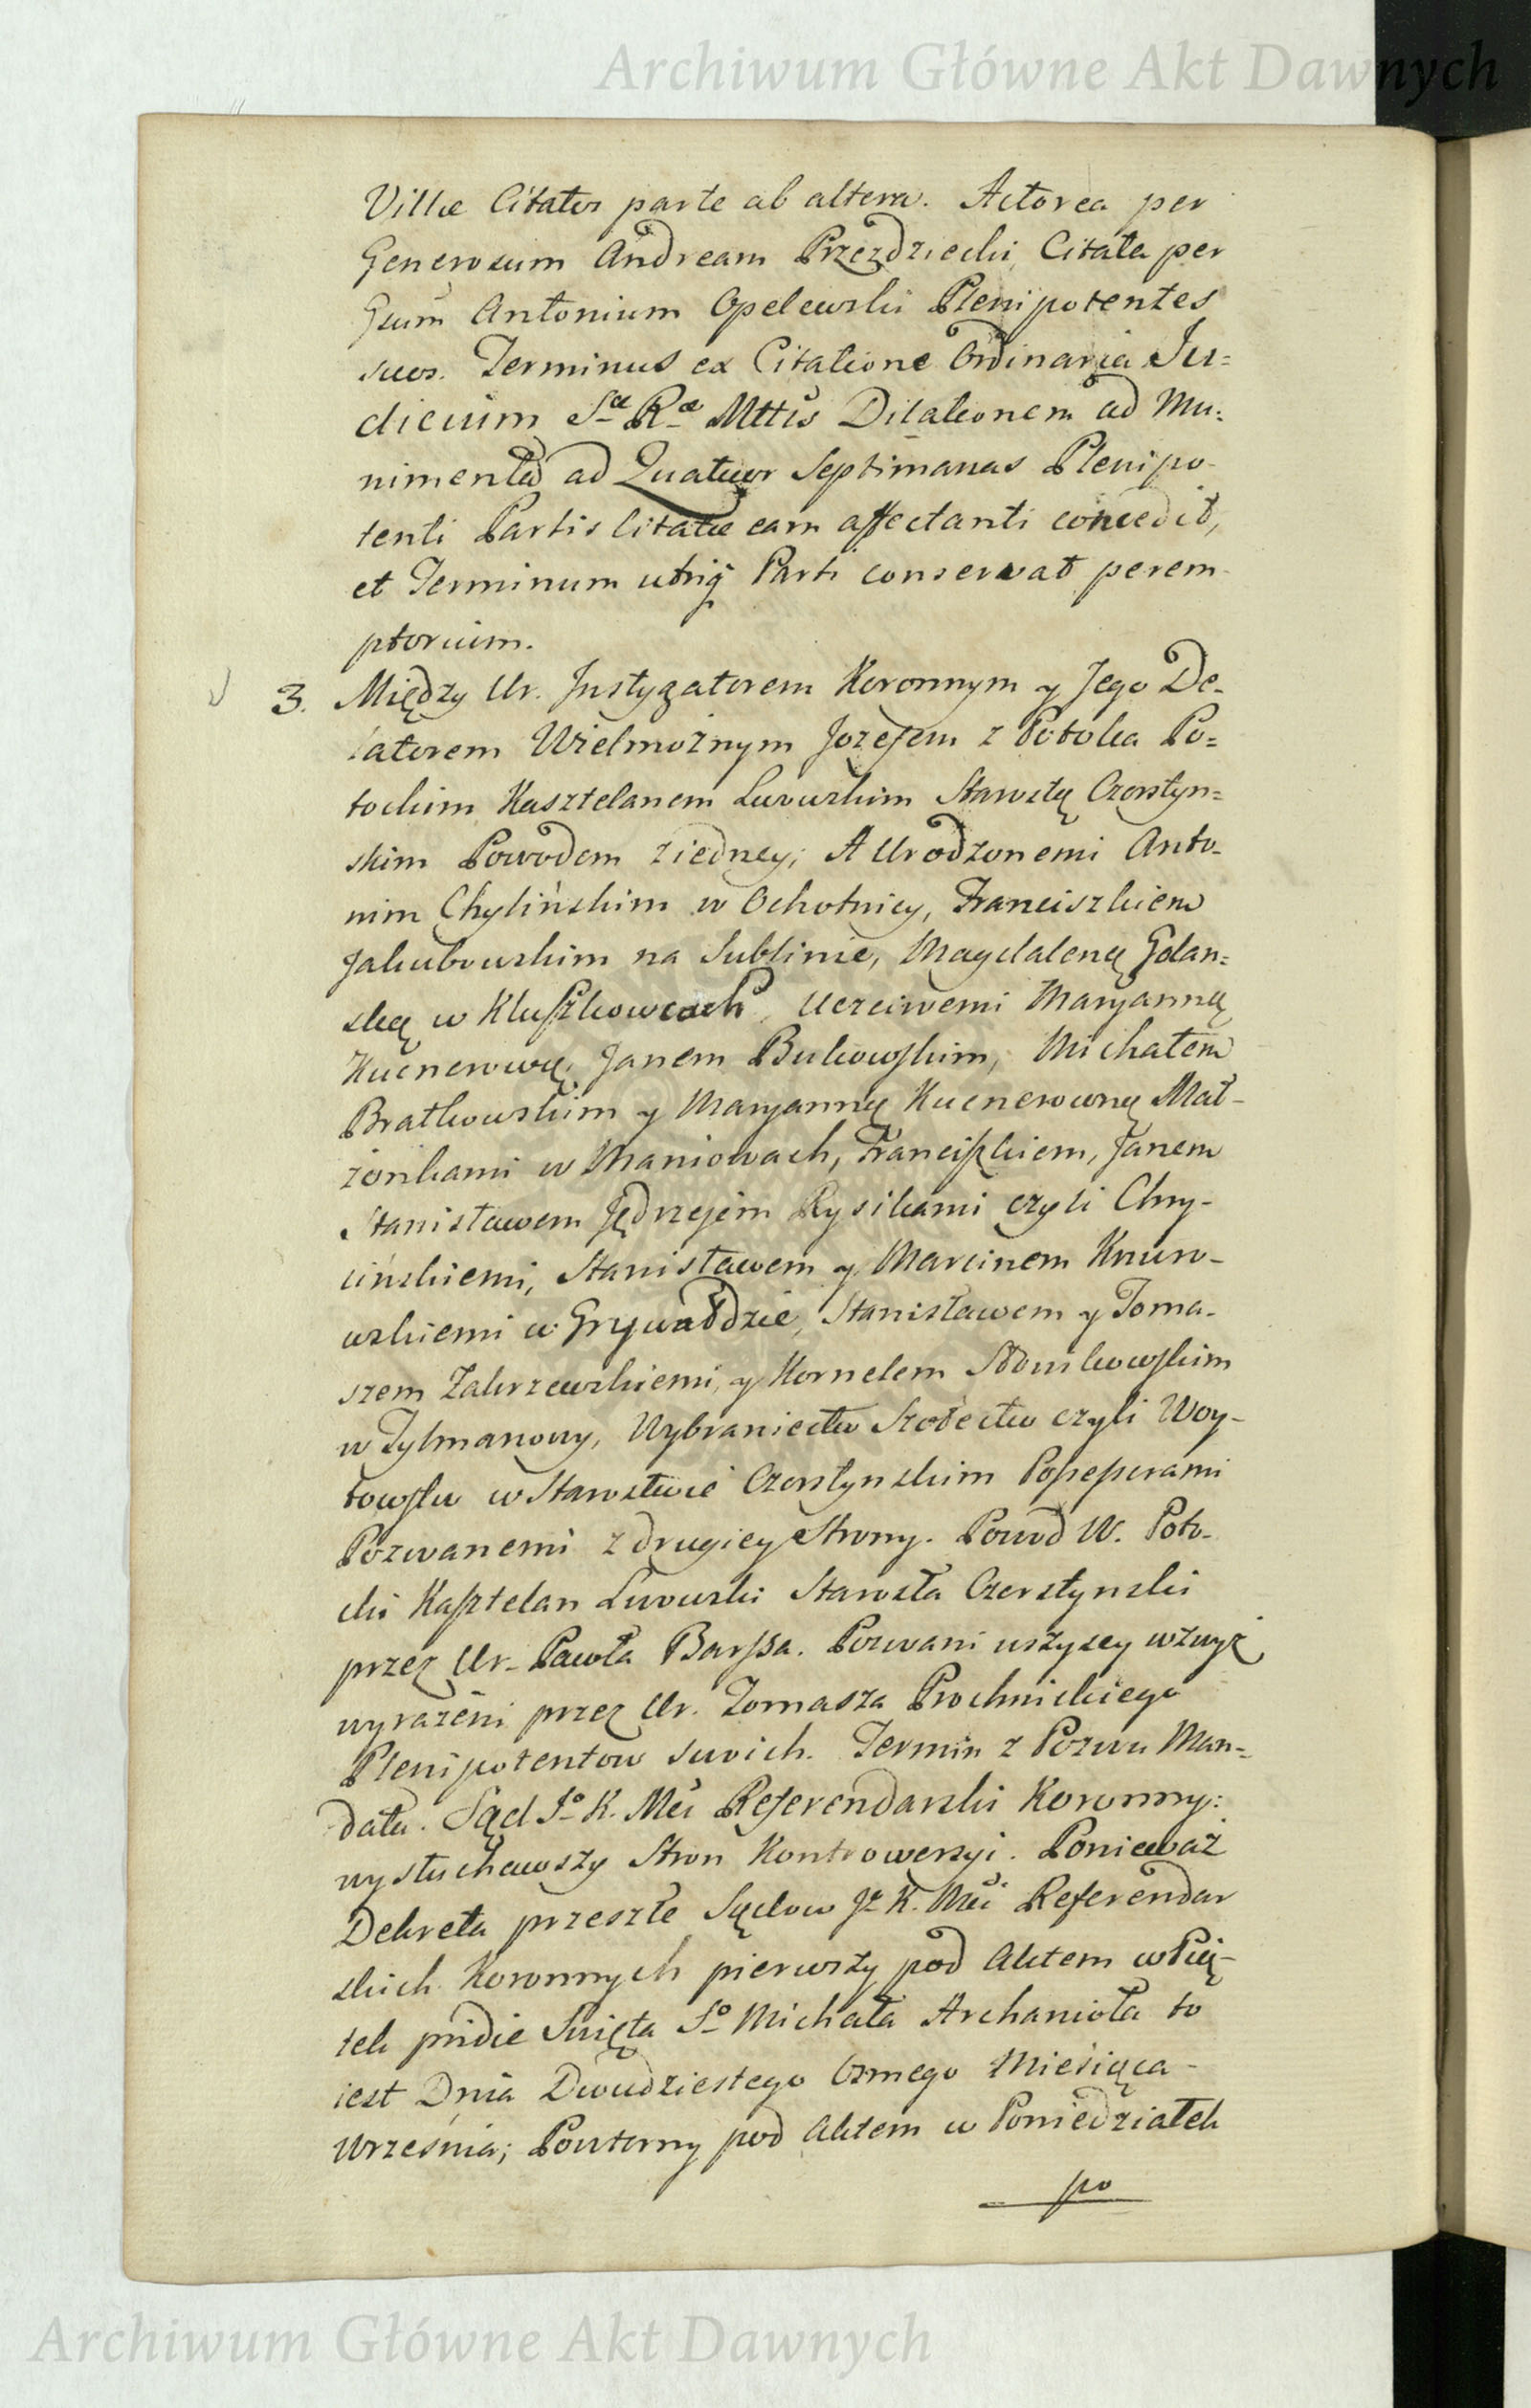 Archiwum Główne Akt Dawnych
Villæ Citatos parte ab altera. Actorea per
Generosum Andream Przezdziecki, Citata per
Gsum Antonium Opelewski Plenipotentes
suos. Terminus ex Citatione Ordinaria Ju=
dicium S. R. Mttis Dilationem ad Mu=
nimenta ad Quatuor Septimanas Plenipo-
tenti Partis Citatæ eam affectanti concedit,
et Terminum utriq Parti conservat perem-
ptorium.
3. Między Ur. Instygatorem Koronnym y Jego De-
latorem Wielmożnym Jozefem z Potoka Po=
tockim Kasztelanem Lwowskim Starostą Czorstyn=
skim Powodem ziedney; A Urodzonemi Anto-
nim Chylińskim w Ochotnicy, Franciszkiem
Jakubowskim na Sublinie, Magdaleną Golan=
ską w Kluszkowcach, Uczciwemi Maryanną
Kucnerową, Janem Bukowskim, Michałem
Bratkowskim y Maryanną Kucnerowną Mał-
żonkami w Maniowach, Franciszkiem, Janem
Stanisławem Jędrzejem Rysikami czyli Chry-
cińskiemi, Stanisławem y Marcinem Knuro-
wskiemi w Grywałdzie, Stanisławem y Toma-
szem Zakrzewskiemi, y Kornelem Słomkowskim
w Tylmanowy, Wybraniectw Szołectw czyli Woy-
towstw w Starostwie Czorstynskim Possessorami
Pozwanemi z drugiey Strony. Powod W. Poto-
cki Kasztelan Lwowski Starosta Czorstynski
przez Ur. Pawła Barssa. Pozwani wszyscy wzwyż
wyrażeni przez Ur. Tomasza Prochnickiego
Plenipotentow swoich. Termin z Pozwu Man=
datu. Sąd Jo K. Mci Referendarski Koronny:
wysłuchawszy Stron Kontrowersyi. Ponieważ
Dekreta przeszłe Sądow Jo K. Mci Referendar
skich Koronnych pierwszy pod Aktem w Pią-
tek pridie Swięta So Michała Archanioła to
iest Dnia Dwudziestego Osmego Miesiąca
Września; Powtorny pod Aktem w Poniedziałek
po
Archiwum Główne Akt Dawnych